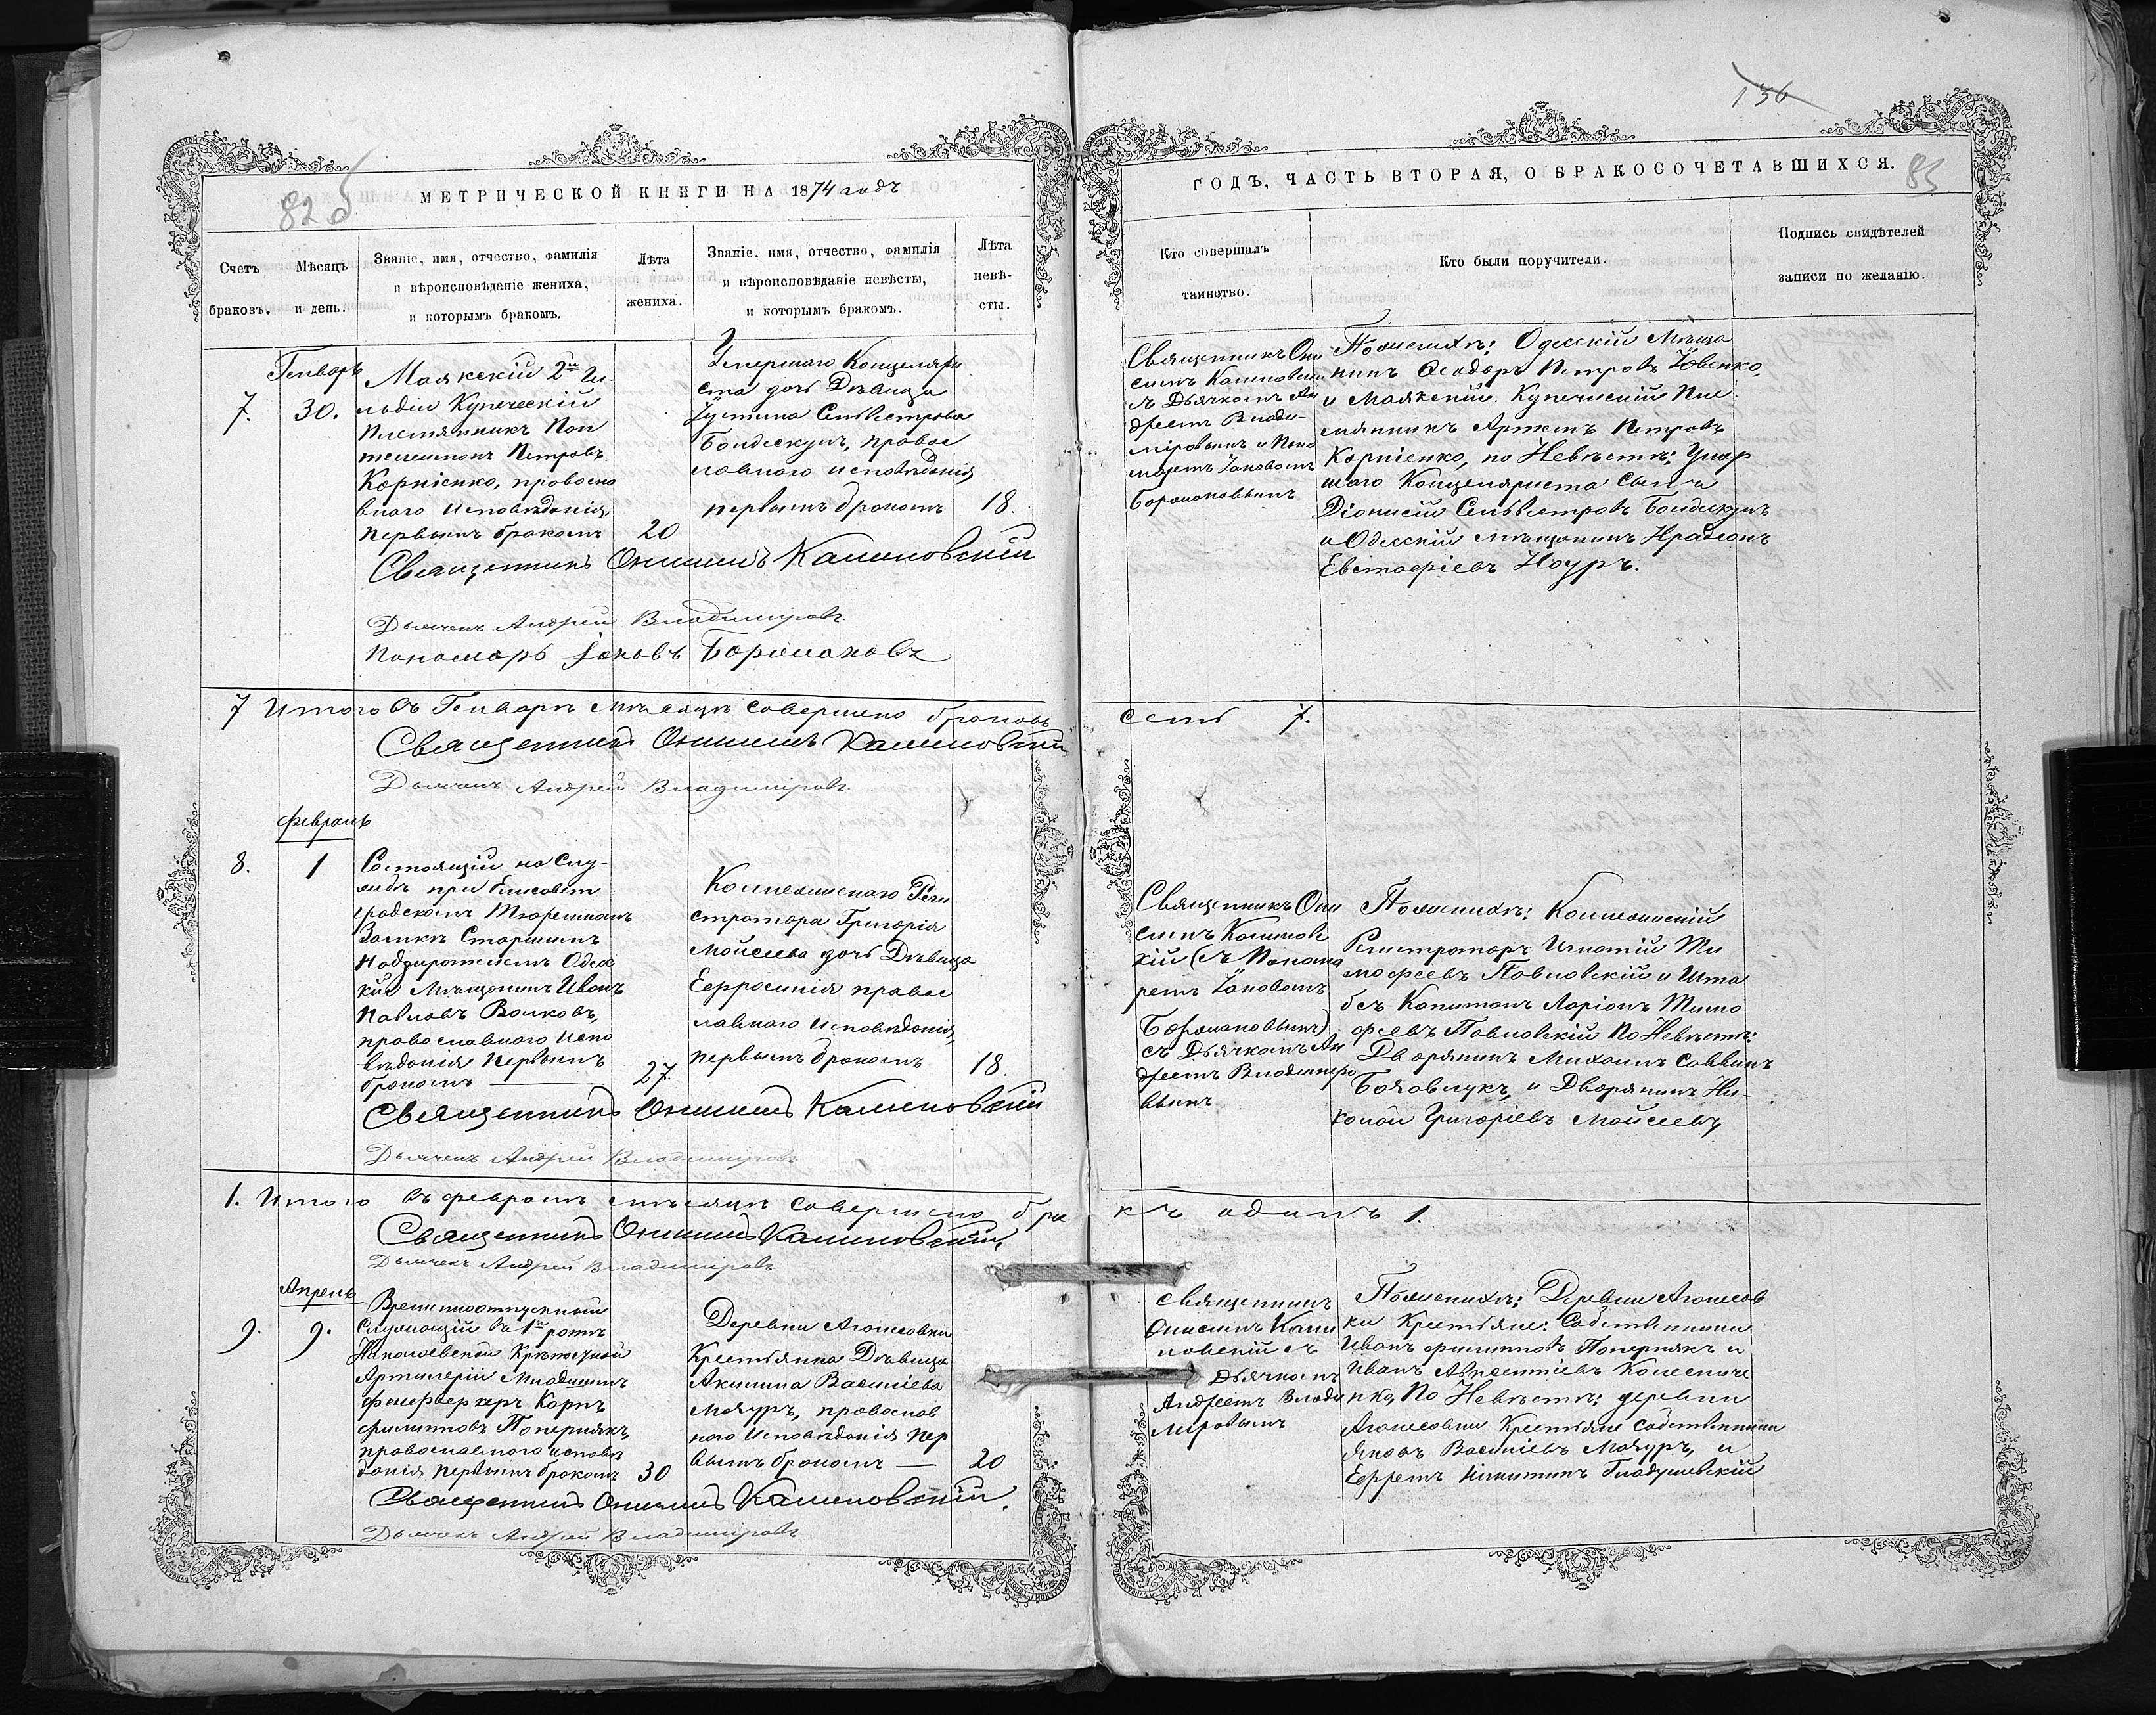 82 б
МЕТРИЧЕСКОЙ КНИГИ НА 1874 годъ
Счетъ
браковъ.
Мѣсяцъ
и день.
Званіе, имя, отчество, фамилія
и вѣроисповѣданіе жениха,
и которымъ бракомъ.
Лѣта
жениха.
Званіе, имя, отчество, фамилія
и вѣроисповѣданіе невѣсты,
и которымъ бракомъ.
Лѣта
невѣ-
сты.
Генварь
7.
30.
Маякскій 2й Ги-
льдіи Купеческій
Племянникъ Пан
телеимонъ Петровъ
Корніенко, правосла
внаго исповѣданія,
первымъ бракомъ
20
Умершаго Канцеляри
ста дочь Дѣвица
Іустина Сельвестрова
Бондескулъ, правос
лавнаго исповѣданія,
первымъ бракомъ
18.
Священникъ Онисимъ Калиновскій
Дьячекъ Андрей Владиміровъ
Пономарь Іаковъ
7 Итого въ Генварѣ мѣсяцѣ совершено браковъ
Священникъ Онисимъ Калиновскій
Дьячекъ Андрей Владиміровъ
Февраль
8.
1
Состоящій на Слу-
жбѣ при Елисавет
градскомъ Тюремномъ
Замкѣ Старшимъ
Надзирателемъ Одес
кій Мѣщанинъ Иванъ
Павловъ Волковъ,
православнаго испо
вѣданія первымъ
бракомъ
27.
Коллежскаго Реги
стратора Григорія
Мойсеева дочь Дѣвица
Ефросинія правос
лавнаго исповѣданія,
первымъ бракомъ
18.
Священникъ Онисимъ Калиновскій
Дьячекъ Андрей Владиміровъ
1. Итого въ февралѣ мѣсяцѣ совершено бра
Священникъ Онисимъ Калиновскій
Дьячекъ Андрей Владиміровъ
Апрель
9.
9.
Временноотпускный
Служащій въ 1й ротѣ
Николаевской Крѣпостной
Артилеріи Младшимъ
фейерверкеръ Карпъ
Филиповъ Попернякъ
православнаго исповѣ
данія первымъ бракомъ
30
Деревни
Крестьянка Дѣвица
Акилина Василіева
Мазуръ, православ
наго исповѣданія пер
вымъ бракомъ
20
Священникъ Онисимъ Калиновскій.
Дьячекъ Андрей Владиміровъ
136
83
ГОДЪ, ЧАСТЬ ВТОРАЯ, О БРАКОСОЧЕТАВШИХСЯ.
Кто совершалъ
таинство.
Кто были поручители.
Подпись свидѣтелей
записи по желанію.
Священникъ Они
симъ Калиновскій
съ Дьячкомъ Ан
дреемъ Влади-
міровымъ и Поно
маремъ Іаковомъ
По женихѣ: Одесскій Мѣща
нинъ Феодоръ Петровъ Іовенко,
и Маякскій Купеческій Пле
мянникъ Артемъ Петровъ
Корніенко, по Невѣстѣ: Умер
шаго Канцеляриста Сынъ
Діонисій Сельвестровъ Бондескулъ
и Одесскій мѣщанинъ
Евстафіевъ
семь 7.
Священникъ Они
симъ Калинов
скій (съ Понома
ремъ Іаковомъ
съ Дьячкомъ Ан
дреемъ Владиміро
вымъ
По женихѣ: Коллежскій
Регистраторъ Игнатій Ти
мофеевъ Павловскій и Шта
бсъ Капитанъ Ларіонъ Тимо
феевъ Павловскій По Невѣстѣ:
Дворянинъ Михаилъ Саввинъ
и Дворянинъ Ни-
колай Григоріевъ Мойсеевъ
къ одинъ 1.
Священникъ
Онисимъ Кали
новскій съ
Дьячкомъ
Андреемъ Влади
міровымъ
По женихѣ: Деревни
ки Крестьяне: Собственники
Иванъ Филиповъ Попернякъ и
Иванъ Авксентіевъ
нко, По Невѣстѣ: деревни
Крестьяне собственники
Яковъ Василіевъ Мазуръ, и
Ефремъ Никитинъ Гладушевскій